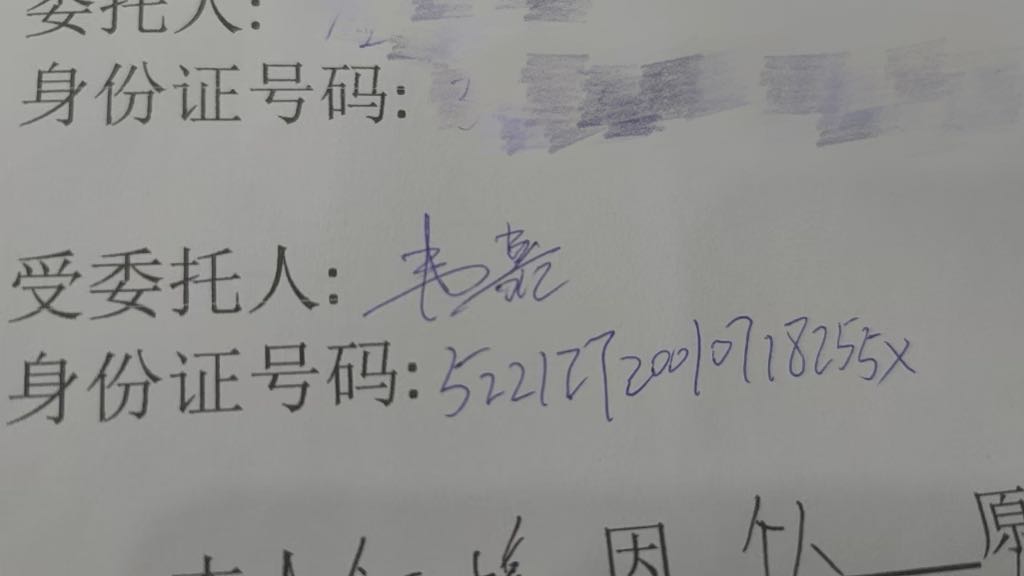 委托人:
身份证号码:
受委托人: 韦
身份证号码: 52212720010718255x
因 个人 原